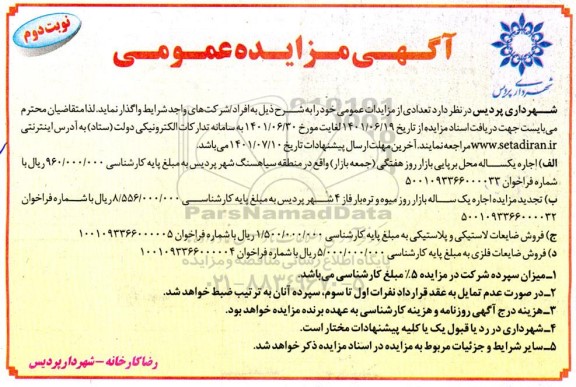 نوبت دوم
آگهی مزایده عمومی
شهرداری پردیس
شهرداری پردیس در نظر دارد تعدادی از مزایدات عمومی خود را به شرح ذیل به افراد/شرکت‌های واجد شرایط واگذار نماید. لذا متقاضیان محترم
می‌بایست جهت دریافت اسناد مزایده از تاریخ ۱۴۰۱/۰۶/۱۹ لغایت مورخ ۱۴۰۱/۰۶/۳۰ به سامانه تدارکات الکترونیکی دولت (ستاد) به آدرس اینترنتی
www.setadiran.ir مراجعه نمایند. آخرین مهلت ارسال پیشنهادات تاریخ ۱۴۰۱/۰۷/۱۰ می‌باشد.
الف) اجاره یکساله محل برپایی بازار روز هفتگی (جمعه بازار) واقع در منطقه سیاهسنگ شهر پردیس به مبلغ پایه کارشناسی ۹۶۰/۰۰۰/۰۰۰ ریال با
شماره فراخوان ۵۰۰۱۰۹۳۳۶۶۰۰۰۰۳۳
ب) تجدید مزایده اجاره یک ساله بازار روز میوه و تره بار فاز ۴ شهر پردیس به مبلغ پایه کارشناسی ۸/۵۵۶/۰۰۰/۰۰۰ ریال با شماره فراخوان
۵۰۰۱۰۹۳۳۶۶۰۰۰۰۳۲
ج) فروش ضایعات لاستیکی و پلاستیکی به مبلغ پایه کارشناسی ۱/۵۰۰/۰۰۰/۰۰۰ ریال با شماره فراخوان ۱۰۰۱۰۹۳۳۶۶۰۰۰۰۰۵
د) فروش ضایعات فلزی به مبلغ پایه کارشناسی ۵/۰۰۰/۰۰۰/۰۰۰ ریال با شماره فراخوان ۱۰۰۱۰۹۳۳۶۶۰۰۰۰۰۴
۱-میزان سپرده شرکت در مزایده ۵٪ مبلغ کارشناسی می‌باشد.
۲-در صورت عدم تمایل به عقد قرارداد نفرات اول تا سوم، سپرده آنان به ترتیب ضبط خواهد شد.
۳-هزینه درج آگهی روزنامه و هزینه کارشناسی به عهده برنده مزایده خواهد بود.
۴-شهرداری در رد یا قبول یک یا کلیه پیشنهادات مختار است.
۵-سایر شرایط و جزئیات مربوط به مزایده در اسناد مزایده ذکر خواهد شد.
رضا کارخانه - شهردار پردیس
ParsNamadData
پایگاه اطلاع رسانی مناقصه و مزایده
۰۲۱-۸۸۳۴۹۶۷۰-۵